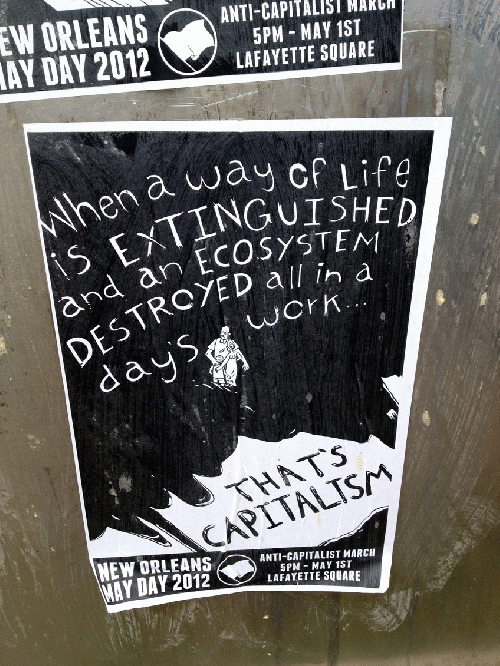 EW ORLEANS
AY DAY 2012
ANTI-CAPITALIST MARCH
5PM - MAY 1ST
LAFAYETTE SQUARE
When a way of Life
is EXTINGUISHED
and an ECOSYSTEM
DESTROYED all in a
day's work...
THAT'S
CAPITALISM
NEW ORLEANS
MAY DAY 2012
ANTI-CAPITALIST MARCH
5PM - MAY 1ST
LAFAYETTE SQUARE